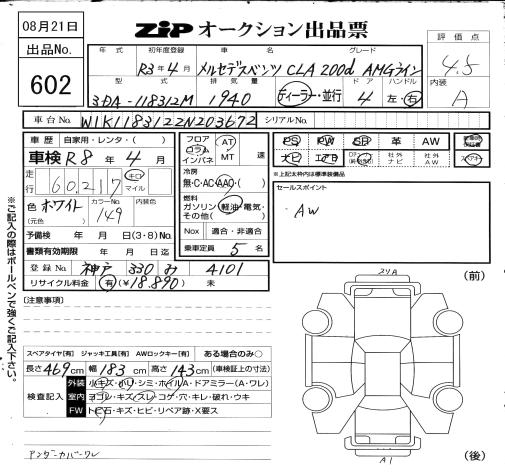 08月21日
出品No.
602
ZIP オークション出品票
評価点
4.5
内装
A
年式 初年度登録 車名 グレード
R3年4月 メルセデスベンツ CLA 200d AMGライン
型式 排気量 ドア ハンドル
3DA-118312M 1940 ディーラー・並行 4 左・右
車台No. W1K1183122N203672 シリアルNo.
車歴 自家用・レンタ・( )
車検 R8年4月
走行 60,217 キロ マイル
色 ホワイト (元色) カラーNo. 149 内装色
予備検 年 月 日(3・8)No.
書類有効期限 年 月 日迄
登録No. 神戸 330 み 4101
リサイクル料金 有(¥18,890) 未
フロア コラム インパネ AT MT 速
冷房 無・C・AC・AAC・( )
燃料 ガソリン・軽油・電気・その他( )
Nox 適合・非適合
乗車定員 5名
PS PW SR 革 AW
ナビ エアB 社外ナビ 社外AW
※上記太枠内は標準装備品
セールスポイント
・AW
※ご記入の際はボールペンで強くご記入下さい。
[注意事項]
スペアタイヤ[有] ジャッキ工具[有] AWロックキー[有] ある場合のみ○
長さ469cm 幅183cm 高さ143cm (車検証上の寸法)
検査記入
外装 小キズ・小リ・シミ・ホイルA・ドアミラー(A・ワレ)
室内 ヨゴレ・キズ・スレ・コゲ・穴・キレ・破れ・ウキ
FW トビ石・キズ・ヒビ・リペア跡・X要ス
アンダーカバーワレ
(前)
(後)
A1